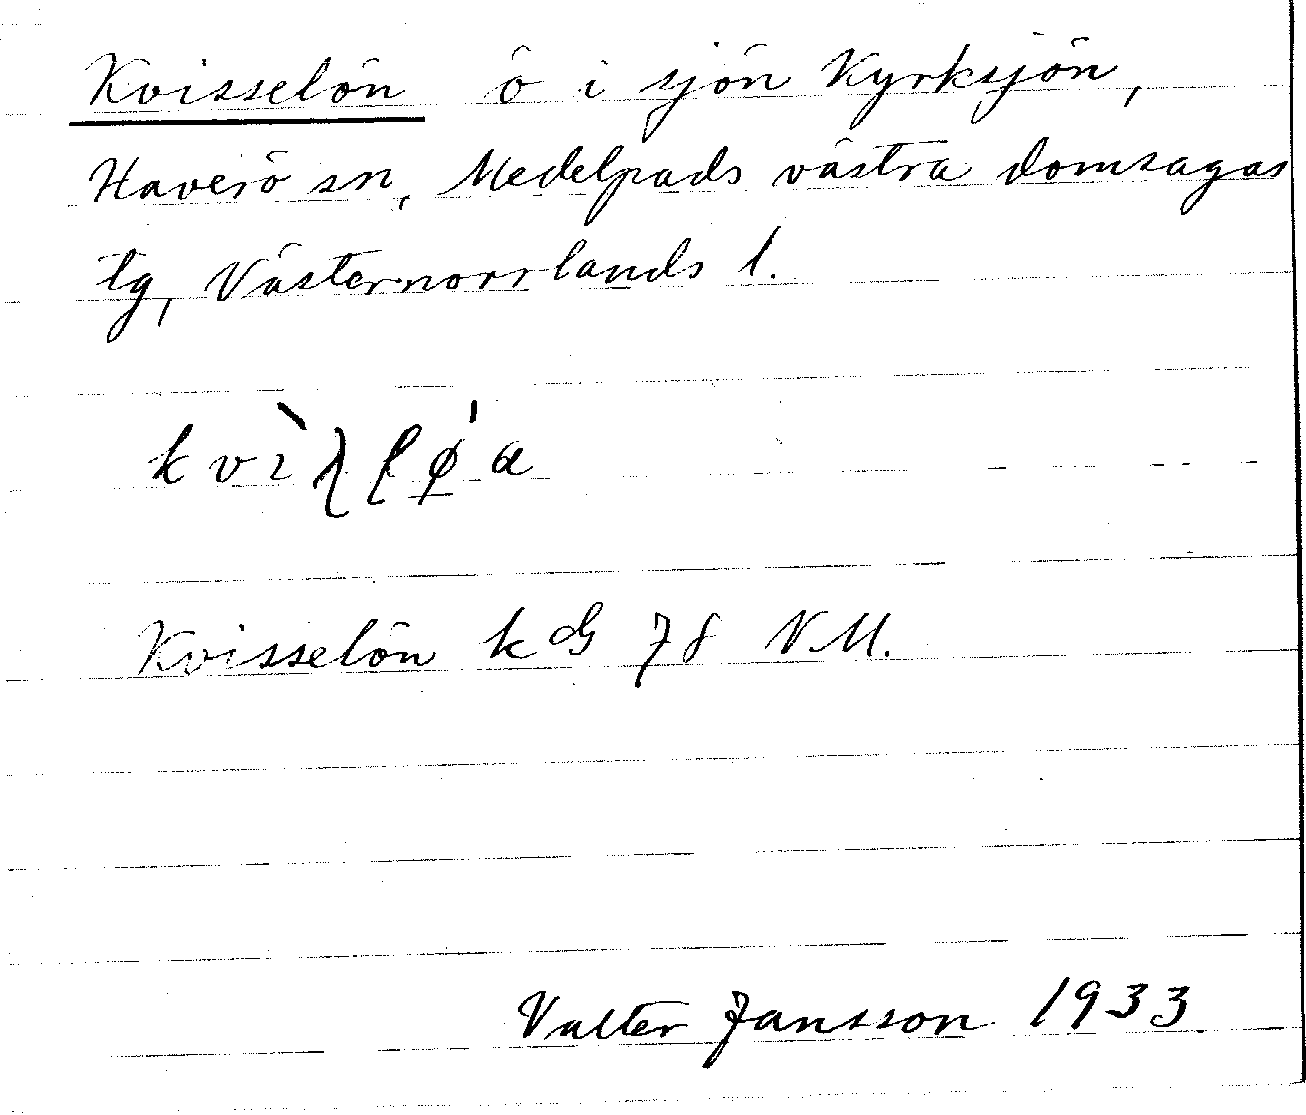 Kvisselön ö i sjön Kyrksjön,
Haverö sn, Medelpads västra domsagas
tg, Västernorrlands l.
Kvisselön k dG 78 NM.
Valter Jansson 1933